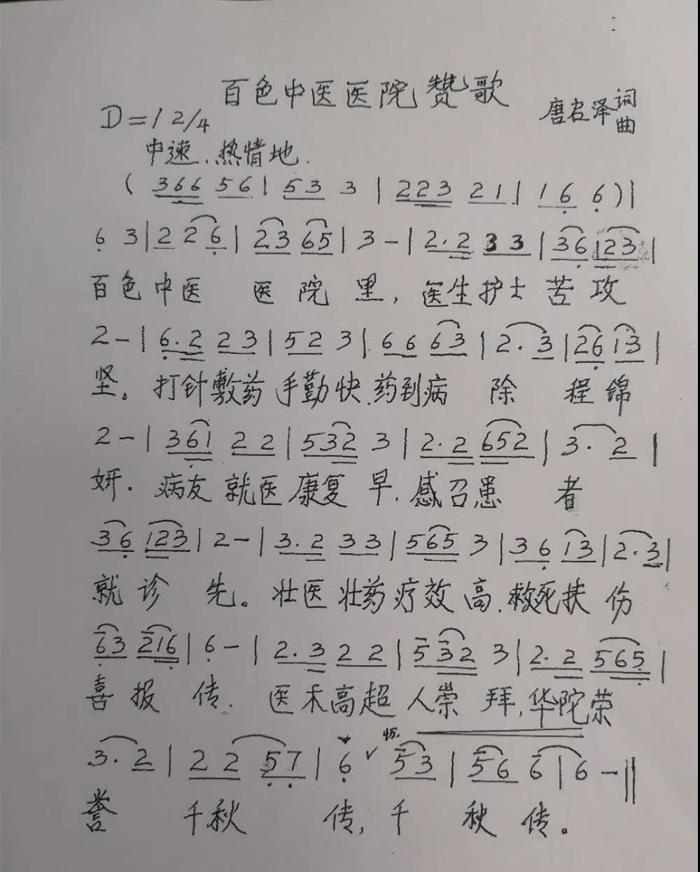 百色中医医院赞歌
D=1 2/4 唐名泽 词曲
中速.热情地.
( 366 56 | 53 3 | 223 21 | 16 6 ) |
6 3 | 2 2 6 | 23 65 | 3 - | 2.2 33 | 36 123 |
百色中医 医院里,医生护士苦攻
2 - | 6.2 23 | 52 3 | 66 63 | 2. 3 | 26 13 |
坚。打针敷药手勤快.药到病 除 程锦
2 - | 361 22 | 532 3 | 2.2 652 | 3. 2 |
妍.病友就医康复早.感召患 者
36 123 | 2 - | 3.2 33 | 565 3 | 36 13 | 2.3 |
就诊先。壮医壮药疗效高.救死扶伤
63 216 | 6 - | 2.3 22 | 532 3 | 2.2 565 |
喜报传. 医术高超人崇拜,华陀荣
3. 2 | 22 57 | 6 ✓ 53 | 56 6 | 6 - ‖
誉 千秋 传,千 秋传。